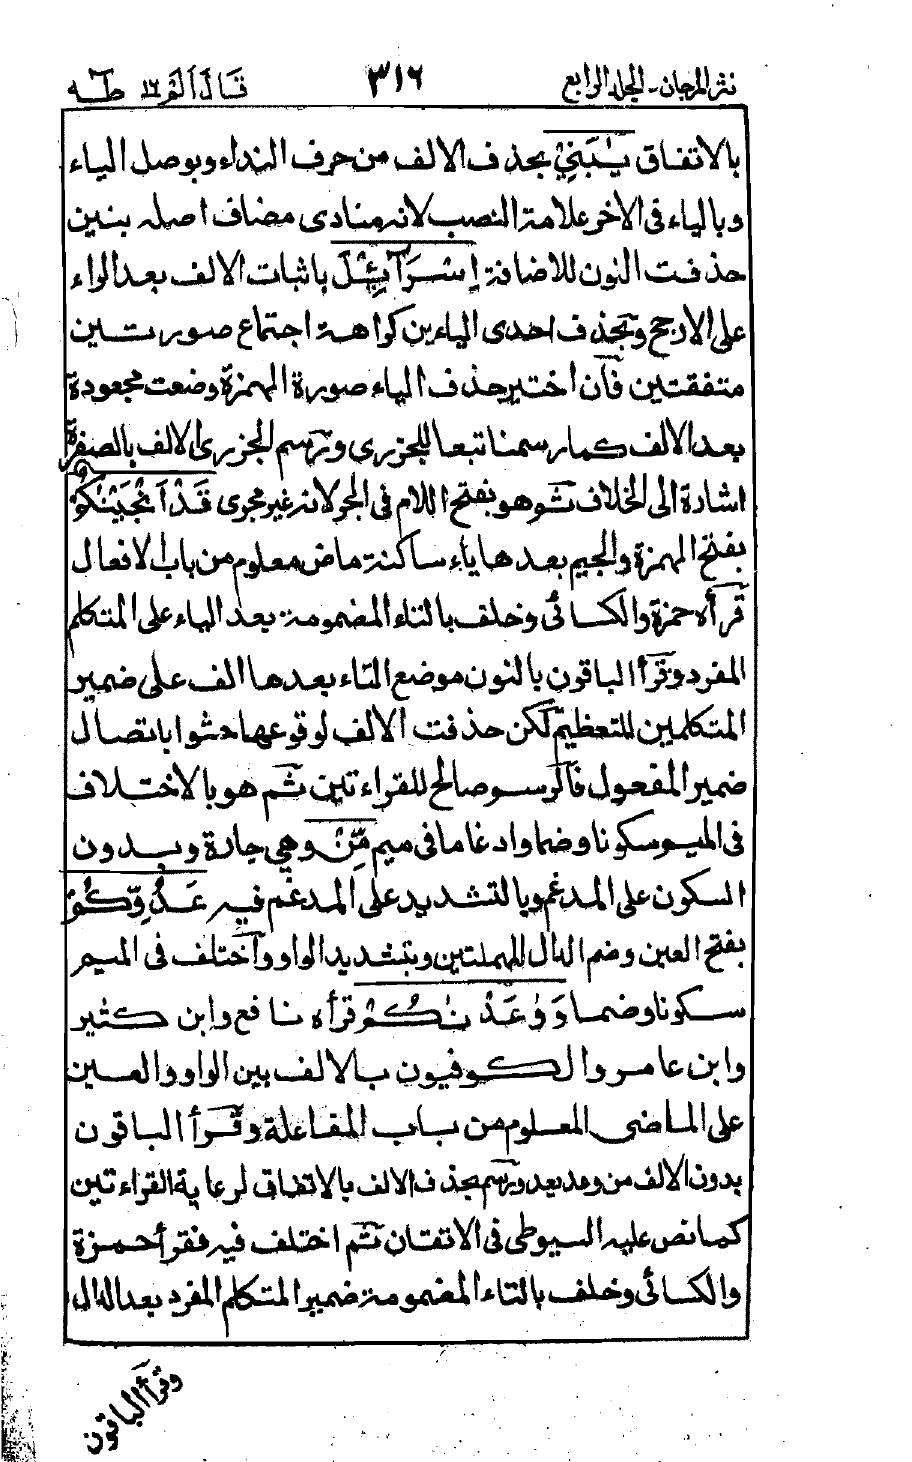 نثر المرجان - المجلد الرابع ٣١٦ قَالَ اَلَمْ ١٦ طٰهٰ
بالاتفاق يٰبَنِيْ بحذف الالف من حرف النداء وبوصل الياء
وبالياء فى الاخر علامة النصب لانه منادى مضاف اصله بنين
حذفت النون للاضافة اِسْرَآئِيْلَ باثبات الالف بعد الراء
على الارجح وبحذف احدى الياءين كراهة اجتماع صورتين
متفقتين فان اختير حذف الياء صورة الهمزة وضعت مجعودة
بعد الالف كما رسمنا تبعا للجزرى ورسم الجزرى الالف بالصفرة
اشارة الى الخلاف ثم هو بفتح اللام فى الجر لانه غير مجرى قَدْ اَنْجَيْنٰكُمْ
بفتح الهمزة والجيم بعدها ياء ساكنة ماض معلوم من باب الافعال
قرأه حمزة والكسائى وخلف بالتاء المضمومة بعد الياء على المتكلم
المفرد وقرأ الباقون بالنون موضع التاء بعدها الف على ضمير
المتكلمين للتعظيم لكن حذفت الالف لوقوعها حشوا باتصال
ضمير المفعول فالرسم صالح للقراءتين ثم هو بالاختلاف
فى الميم سكونا وضما وادغاما فى ميم مِّنْ وهي جارة وبدون
السكون على المدغم وبالتشديد على المدغم فيه عَدُوِّكُمْ
بفتح العين وضم الدال المهملتين وبتشديد الواو واختلف فى الميم
سكونا وضما وَوٰعَدْنٰكُمْ قرأه نافع وابن كثير
وابن عامر والكوفيون بالالف بين الواو والعين
على الماضى المعلوم من باب المفاعلة وقرأ الباقون
بدون الالف من وعد يعد ورسم بحذف الالف بالاتفاق لرعاية القراءتين
كما نص عليه السيوطى فى الاتقان ثم اختلف فيه فقرأ حمزة
والكسائى وخلف بالتاء المضمومة ضمير المتكلم المفرد بعد الدال
وقرأ الباقون